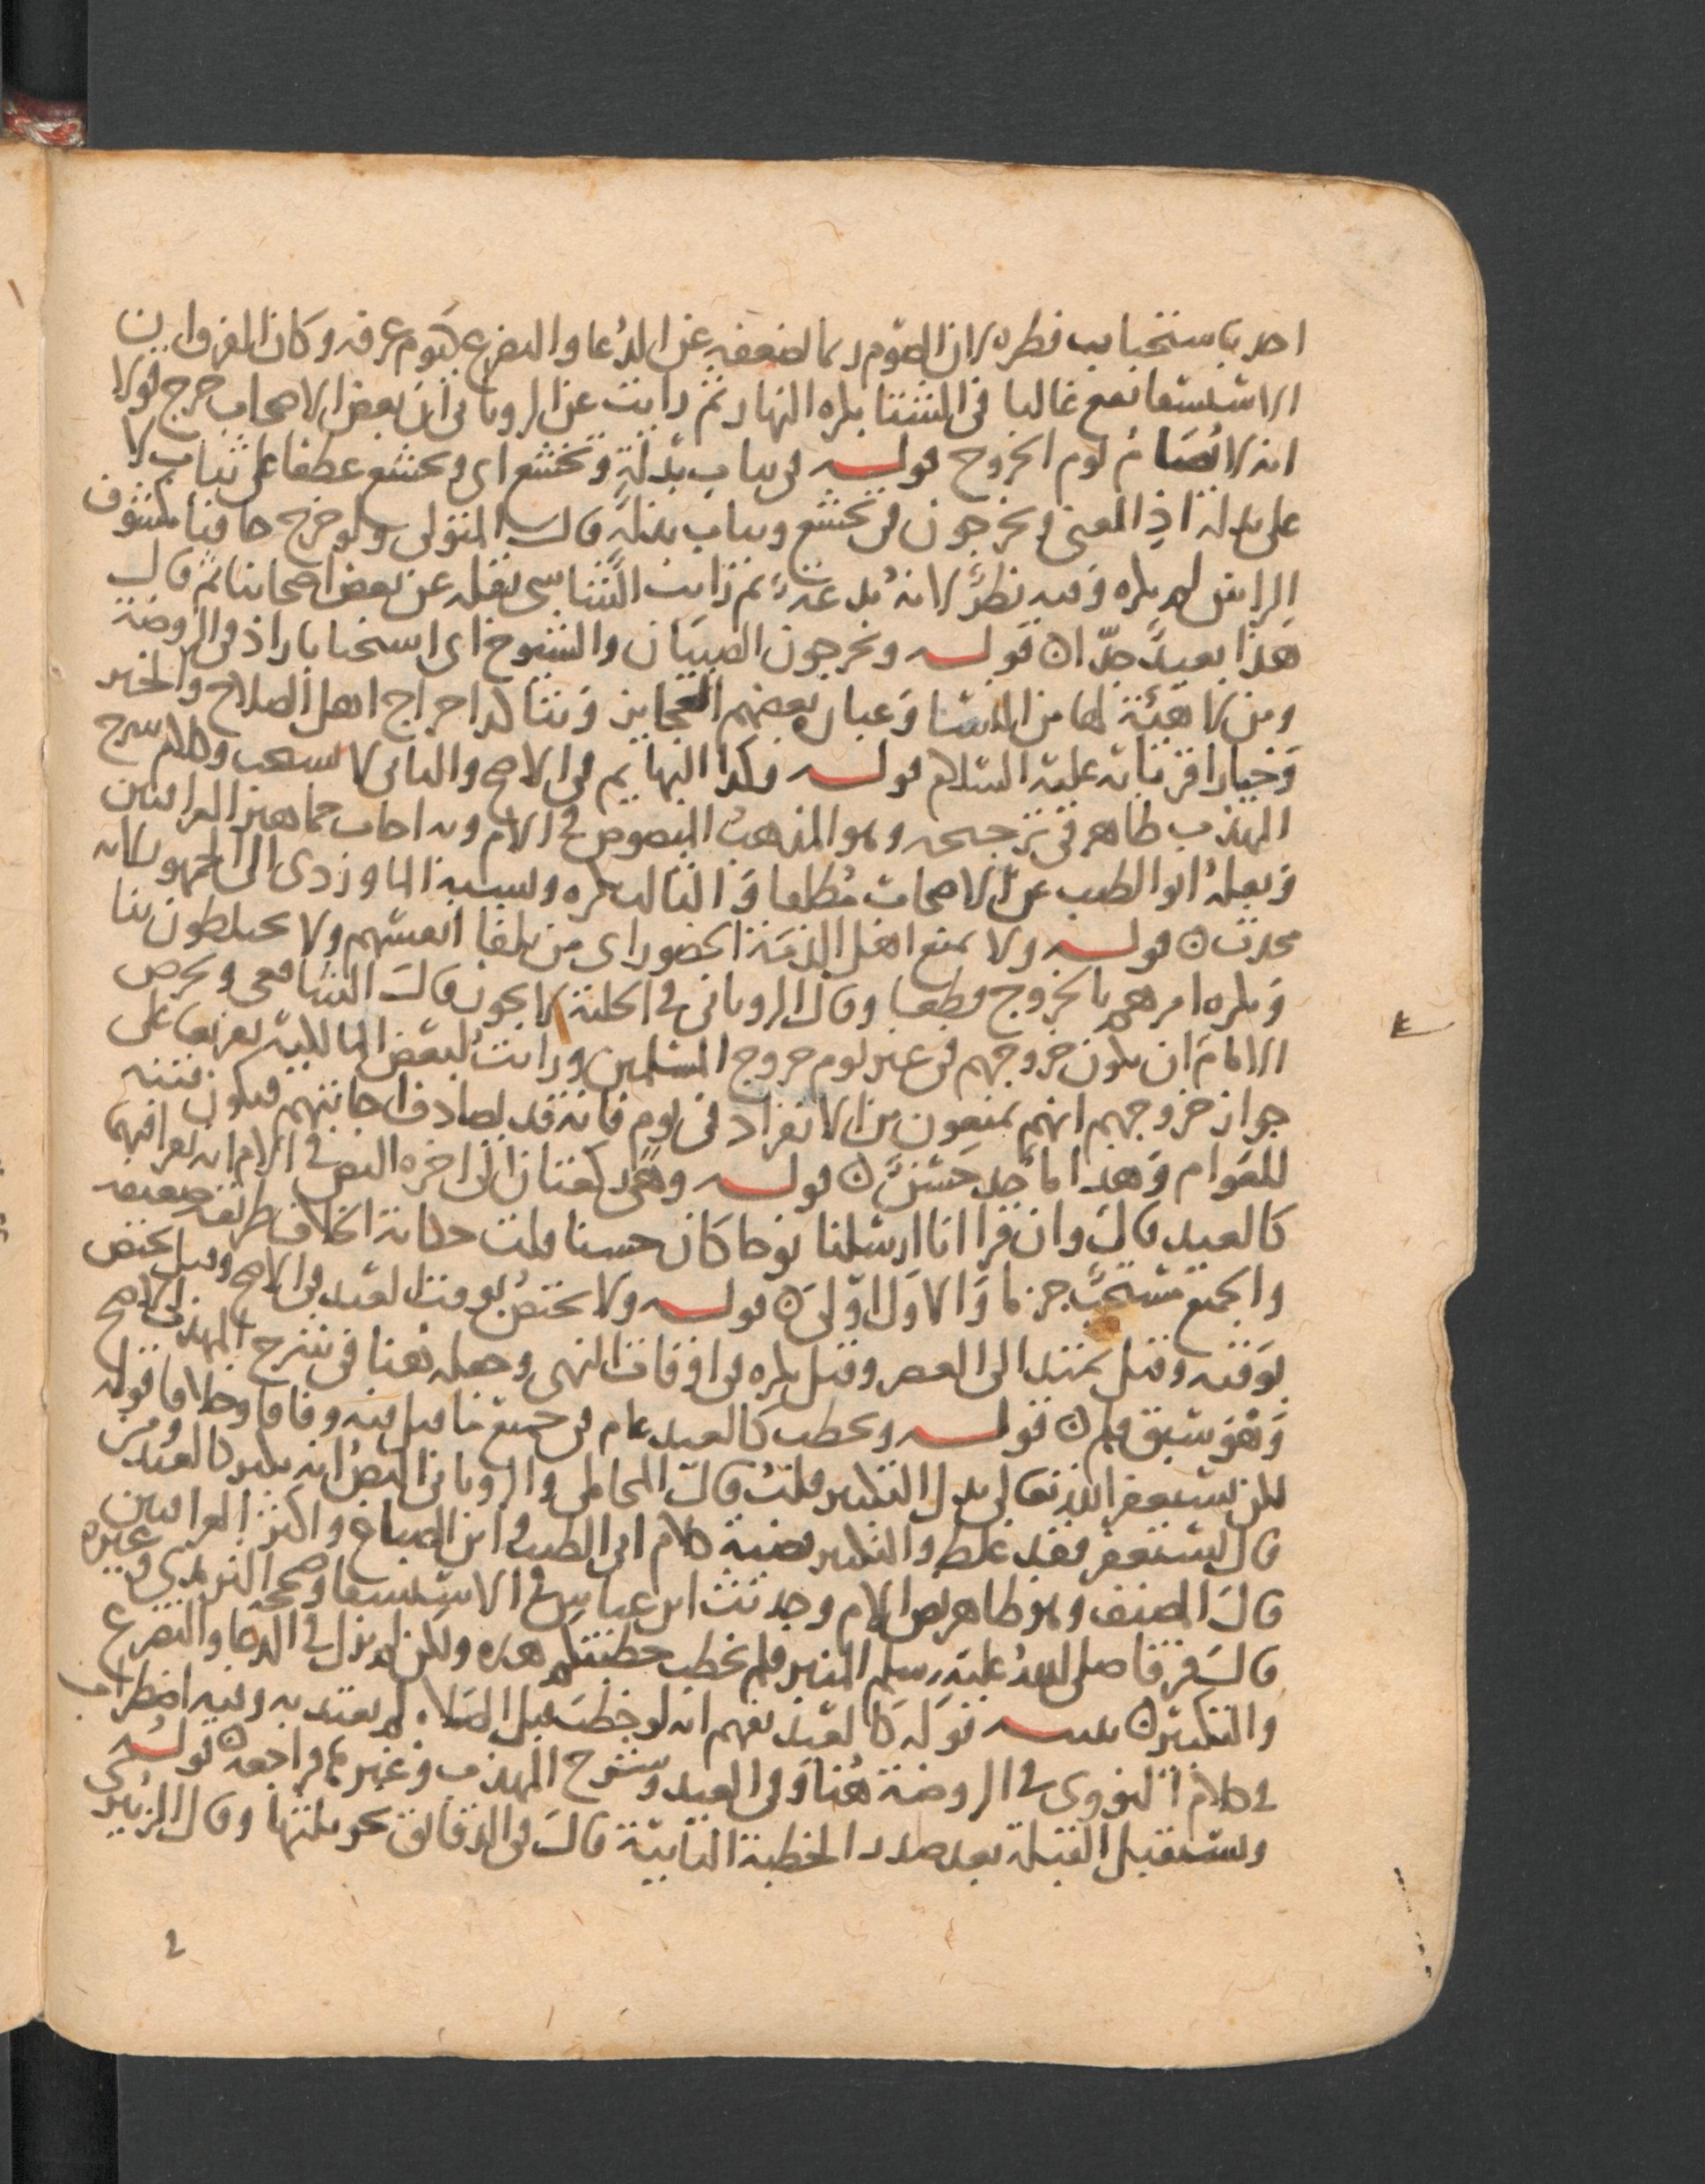 احد باستحباب فطره لان الصوم ربما اضعفه عن الدعا والتضرع كيوم عرفة وكان الفرق ان
الاستسقا يقع غالبا في الشتا بكره النهار ثم رايت عن الروياني ان بعض الاصحاب خرج قولا
انه لا يصام يوم الخروج قوله في ثياب بذلة وتخشع اي وبخشع عطفا على ثياب لا
على بذلة اذ المعنى ويخرجون في تخشع وثياب بذلة قال المتولي ولو خرج حافيا مكشوف
الراس لم يكره وفيه نظر لانه بدعة ثم رايت الشاشي نقله عن بعض اصحابنا ثم قال
هذا بعيد جدا ن قوله ويخرجون الصبيان والشيوخ اي استحبابا زاد في الروضة
ومن لا هيئة لها من النسا وعبارة بعضهم العجايز ويتاكد اخراج اهل الصلاح والخير
وخيار اقربايه عليه السلام قوله وكذا البهايم في الاصح والثاني لا يستحب وكلام شرح
المهذب ظاهر في ترجيحه وهو المذهب المنصوص في الام وبه اجاب جماهير العراقيين
ونقله ابو الطيب عن الاصحاب مطلقا والثالث يكره ونسبه الماوردي الى الجمهور لانه
محدث ن قوله ولا يمنع اهل الذمة الحضور اي من تلقا انفسهم ولا يختلطون بنا
ويكره امرهم بالخروج قطعا وقال الروياني في الحلية لا يجوز قال الشافعي ويحرص
الامام ان يكون خروجهم في غير يوم خروج المسلمين ورايت لبعض المالكية تفريعا على
جواز خروجهم انهم يمنعون من الانفراد في يوم فانه قد يصادف اجابتهم فيكون فتنة
للعوام وهذا ماخذ حسن ن قوله وهي ركعتان الى اخره النص في الام انه يقرا فيهما
كالعيد قال وان قرا انا ارسلنا نوحا كان حسنا قلت حكاية الخلاف طريقة ضعيفة
والجميع مستحب جزما والاول اولى ن قوله ولا تختص بوقت العيد في الاصح وقيل تختص
بوقته وقيل يمتد الى العصر وقيل يكره في اوقات النهي وجعله نصا في شرح المهذب الاصح
وهو سبق قلم ن قوله ويخطب كالعيد عام في جميع ما قيل فيه وفاقا وخلافا قوله
لكن يستغفر الله تعالى بدل التكبير قلت قال المحاملي والروياني النص انه يكبر كالعيد ومن
قال يستغفر فقد غلط والتكبير قضية كلام ابي الطيب وابن الصباغ واكثر العراقيين
قال المصنف وهو ظاهر نص الام وحديث ابن عباس في الاستسقا وصححه الترمذي وغيره
قال فرقا صلى الله عليه وسلم المنبر فلم يخطب خطبتكم هذه ولكن لم يزل في الدعا والتضرع
والتكبير ن تنبيه قوله كالعيد يفهم انه لو خطب قبل الصلاة لم يعتد به وفيه اضطراب
في كلام النووي في الروضة هنا وفي العيد وشرح المهذب وغيرهما فراجعه ن قوله
ويستقبل القبلة بعد صدر الخطبة الثانية قال في الدقايق نحو ثلثها وقال الزبيري